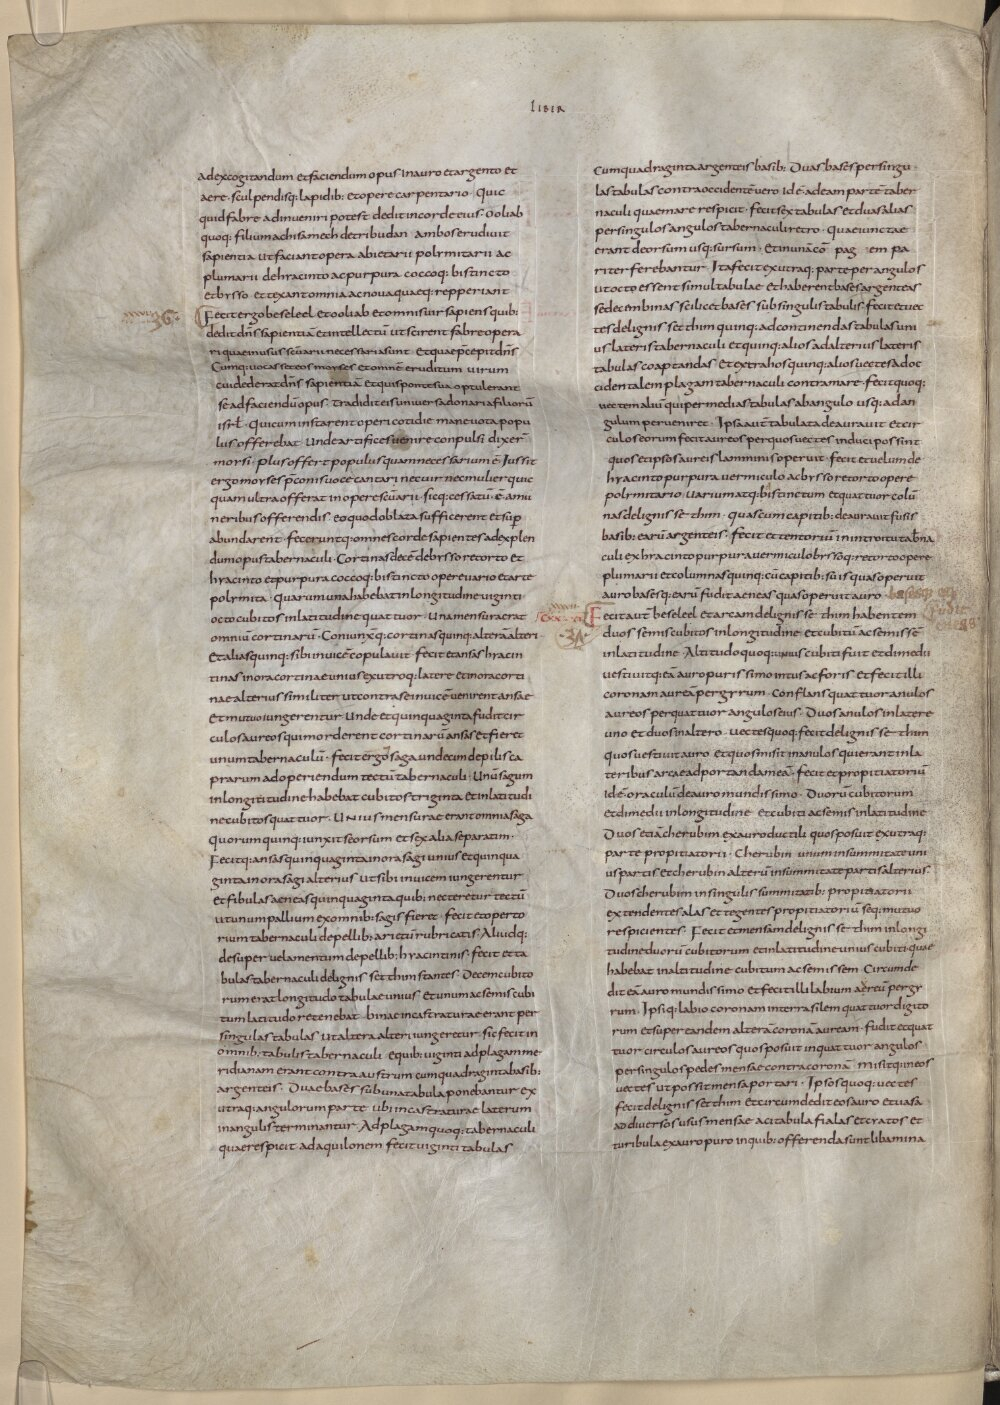 LIBER
adexcogitandum etfaciendum opus Inauro etargento et
aere· sculpendisq: lapidib: etopere carpentario· Quic
quid fabre adinueniri potest dedit incorde eius· Ooliab
quoq: filium achisamech detribu dan Ambos erudiuit
sapientia utfaciant opera abietarii polymitarii ac
plumarii dehyacinto acpurpura coccoq: bistincto
etbysso· ettexant omnia acnoua quaeq: repperiant
Fecit ergo beseleel etooliab etomnis uir sapiens quib:
dedit dn̄s sapientiā etintellectū utscirent fabre opera
ri quae inusus scūarii necessaria sunt· Etquae p̄cepit dn̄s
Cumq: uocasset eos moyses etomnē eruditum uirum
cui dederat dn̄s sapientiā etqui sponte sua optulerant
se adfaciendū opus· Tradidit eis uniuersa donaria filiorū
isrł· Qui cum instarent operi cotidie mane uota popu
lus offerebat Unde artifices uenire conpulsi dixer̄
moysi· plus offert populus quam necessarium ē· Iussit
ergo moyses p̄conis uoce cantari nec uir nec mulier quic
quam ultra offerat inopere scūarii· sicq: cessatū ē amu
neribus offerendis· eoquod oblata sufficerent etsup̄
abundarent· feceruntq: omnes corde sapientes adexplen
dum opus tabernaculi· Cortinas decē debysso retorto et
hyacinto etpurpura coccoq: bistincto opere uario etarte
polymita· Quarum una habebat inlongitudine uiginti
octo cubitos inlatitudine quattuor Una mensura erat
omniū cortinarū· Coniunxq: cortinas quinq: altera alteri
Et alias quinq: sibi inuicē copulauit fecit et ansas hyacin
tinas inora cortinae unius exutroq: latere et inora corti
nae alterius similiter utcontra se inuicē uenirent ansae
Et mutuo iungerentur Unde et quinquaginta fudit cir
culos aureos qui morderent cortinarū ansas etfieret
unum tabernaculū· fecit ergo saga undecim depilis ca
prarum adoperiendum tectū tabernaculi· Unū sagum
inlongititudine habebat cubitos triginta et inlatitudi
ne cubitos quattuor· Unius mensurae erant omnia saga
Quorum quinq: iunxit seorsum etsex alia separatim·
Fecitq: ansas quinquaginta inora sagi unius etquinqua
ginta inora sagi alterius utsibi inuicem iungerentur
Et fibulas aeneas quinquaginta quib: necteretur tectū
utunum pallium exomnib: sagis fieret· fecit et operto
rium tabernaculi depellib: arietū rubricatis· Aliudq:
desuper uelamentum depellib: hyacintinis· fecit etta
bulas tabernaculi delignis setthim stantes· Decem cubito
rum erat longitudo tabulae unius Et unum ac semis cubi
tum latitudo retenebat· binae incastraturae erant per
singulas tabulas Utaltera alteri iungeretur· sic fecit in
omnib: tabulis tabernaculi· equib: uiginti adplagam me
ridianam erant contra austrum cum quadraginta basib:
argenteis· Duae bases sub una tabula ponebantur ex
utraq: angulorum parte ubi incastraturae laterum
inangulis terminantur Adplagam quoq: tabernaculi
quae respicit adaquilonem fecit uiginti tabulas
Cum quadraginta argenteis basib: Duas bases per singu
las tabulas contra occidentē uero Id ē adeam partē taber
naculi quae mare respicit· fecit sex tabulas etduas alias
per singulos angulos tabernaculi retro· Quae iunctae
erant deorsum usq: sursum· Et inunā cō pag em pa
riter ferebantur Ita fecit exutraq: parte per angulos
utocto essent simul tabulae Et haberent bases argenteas
sedecem binas scilicet bases sub singulis tabulis· fecit etuec
tes delignis setthim quinq: ad continendas tabulas uni
us lateris tabernaculi et quinq: alios adalterius lateris
tabulas coaptandas Et extra hos quinq: alios uectes adoc
cidentalem plagam tabernaculi contra mare· fecit quoq:
uectem aliū qui per medias tabulas abangulo usq: adan
gulum perueniret· Ipsa aut̄ tabulata deaurauit etcir
culos eorum fecit aureos per quos uectes induci possint
quos etipsos aureis lamminis operuit· fecit etuelum de
hyacinto purpura uermiculo acbysso retorto opere
polymitario uarium atq: bistinctum et quattuor colū
nas delignis setthim· Quas cum capitib: deaurauit fusis
basib: earū argenteis· fecit et tentoriū in introitu tab̄na
culi ex hyacinto purpura uermiculo byssoq: retorto opere
plumarii et columnas quinq: cū capitib: suis quas operuit
auro basesq: earū fudit aeneas quas operuit auro
Fecit aut̄ beseleel et arcam delignis setthim habentem
duos semis cubitos inlongitudine et cubitū ac semissē
inlatitudine Altitudo quoq: unius cubiti fuit et dimidii
uestiuitq: eā auro purissimo intus acforis et fecit illi
coronam aureā per gyrum· Conflans quattuor anulos
aureos per quattuor angulos eius· Duos anulos inlatere
uno et duos inaltero· uectes quoq: fecit delignis setthim
quos uestiuit auro et quos misit inanulos qui erant inla
teribus arcae ad portandam eā· fecit et propitiatoriū
Id ē oraculū deauro mundissimo· Duorū cubitorum
et dimidii inlongitudine et cubiti ac semis inlatitudine
Duos etiā cherubim exauro ductili quos posuit exutraq:
parte propitiatorii· Cherubin unum insummitate uni
us partis Et cherubin alterū insummitate partis alterius·
Duos cherubim insingulis summitatib: propitiatorii
extendentes alas et tegentes propitiatoriū seq: mutuo
respicientes· Fecit et mensam delignis setthim inlongi
tudine duorū cubitorum et inlatitudine unius cubiti quae
habebat inaltitudine cubitum ac semissem· Circumde
dit eā auro mundissimo et fecit illi labium aereū per gy
rum· Ipsiq: labio coronam interrasilem quattuor digito
rum et super eandem alterā coronā auream· fudit et quat
tuor circulos aureos quos posuit inquattuor angulos
per singulos pedes mensae contra coronā misitq: ineos
uectes ut possit mensa portari· Ipsos quoq: uectes
fecit delignis setthim Et circumdedit eos auro et uasa
ad diuersos usus mensae acitabula fialas et cyatos et
turibula exauro puro inquib: offerenda sunt libamina